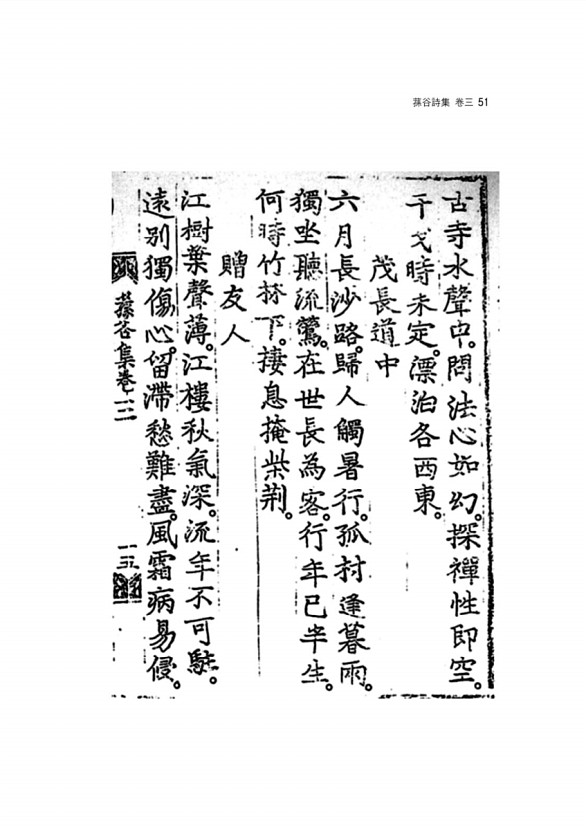 蓀谷詩集 卷三 51
古寺水聲中。問法心如幻。探禪性即空。
干戈時未定。漂泊各西東。
茂長道中
六月長沙路。歸人觸暑行。孤村逢暮雨。
獨坐聽流鶯。在世長為客。行年已半生。
何時竹林下。捿息掩柴荆。
贈友人
江樹葉聲薄。江樓秋氣深。流年不可駐。
遠別獨傷心。留滯愁難盡。風霜病易侵。
蓀谷集卷三
一五